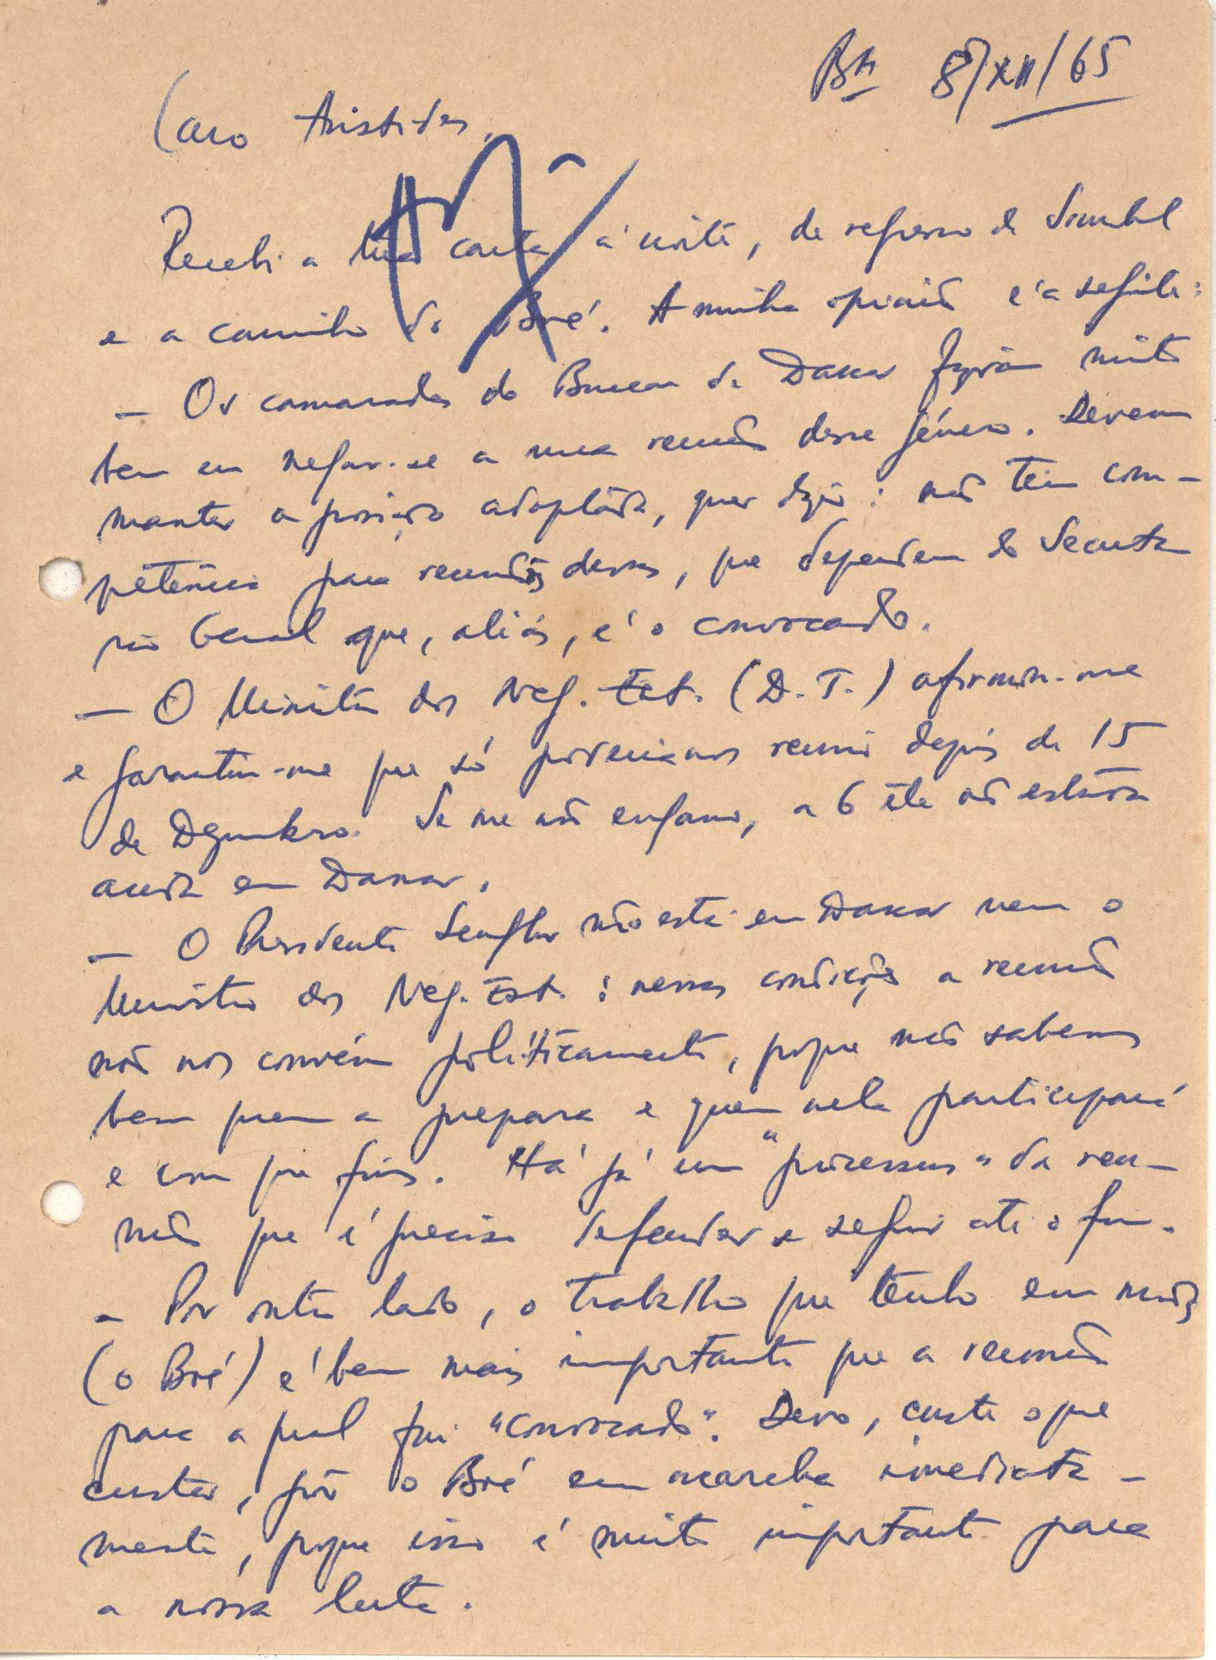 Bké 8/XII/65
Caro Aristides,
Recebi a tua carta à noite, de regresso de Simbel
e a caminho do Boé. A minha opinião é a seguinte:
— Os camaradas do Bureau de Dakar fizeram muito
bem em negar-se a uma reunião desse género. Devem
manter a posição adoptada, quer dizer: não têm com-
petência para reuniões dessas, que dependem do Secretá
rio Geral que, aliás, é o convocado.
— O Ministro dos Neg. Est. (D. T.) afirmou-me
e garantiu-me que só poderíamos reunir depois de 15
de Dezembro. Se me não engano, a 6 êle não estava
ainda em Dakar.
— O Presidente Senghor não está em Dakar nem o
Ministro dos Neg. Est.: nessas condições a reunião
não nos convém políticamente, porque não sabemos
bem quem a prepara e quem nela participará
e com que fins. Há já um "processus" da reu-
nião que é preciso defender e seguir até o fim.
— Por outro lado, o trabalho que tenho em mãos
(o Boé) é bem mais importante que a reunião
para a qual fui "convocado". Devo, custe o que
custar, pôr o Boé em marcha imediata-
mente, porque isso é muito importante para
a nossa luta.